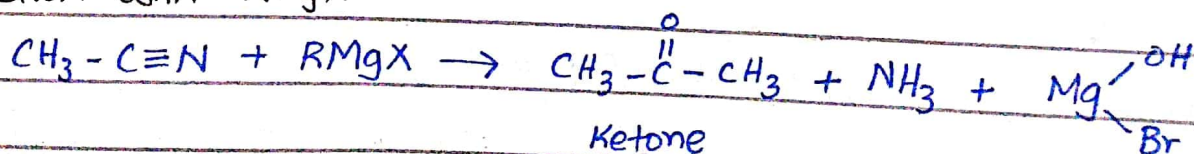 CH₃ - C≡N + RMgX → CH₃ - C(=O) - CH₃ + NH₃ + Mg(OH)(Br)
Ketone